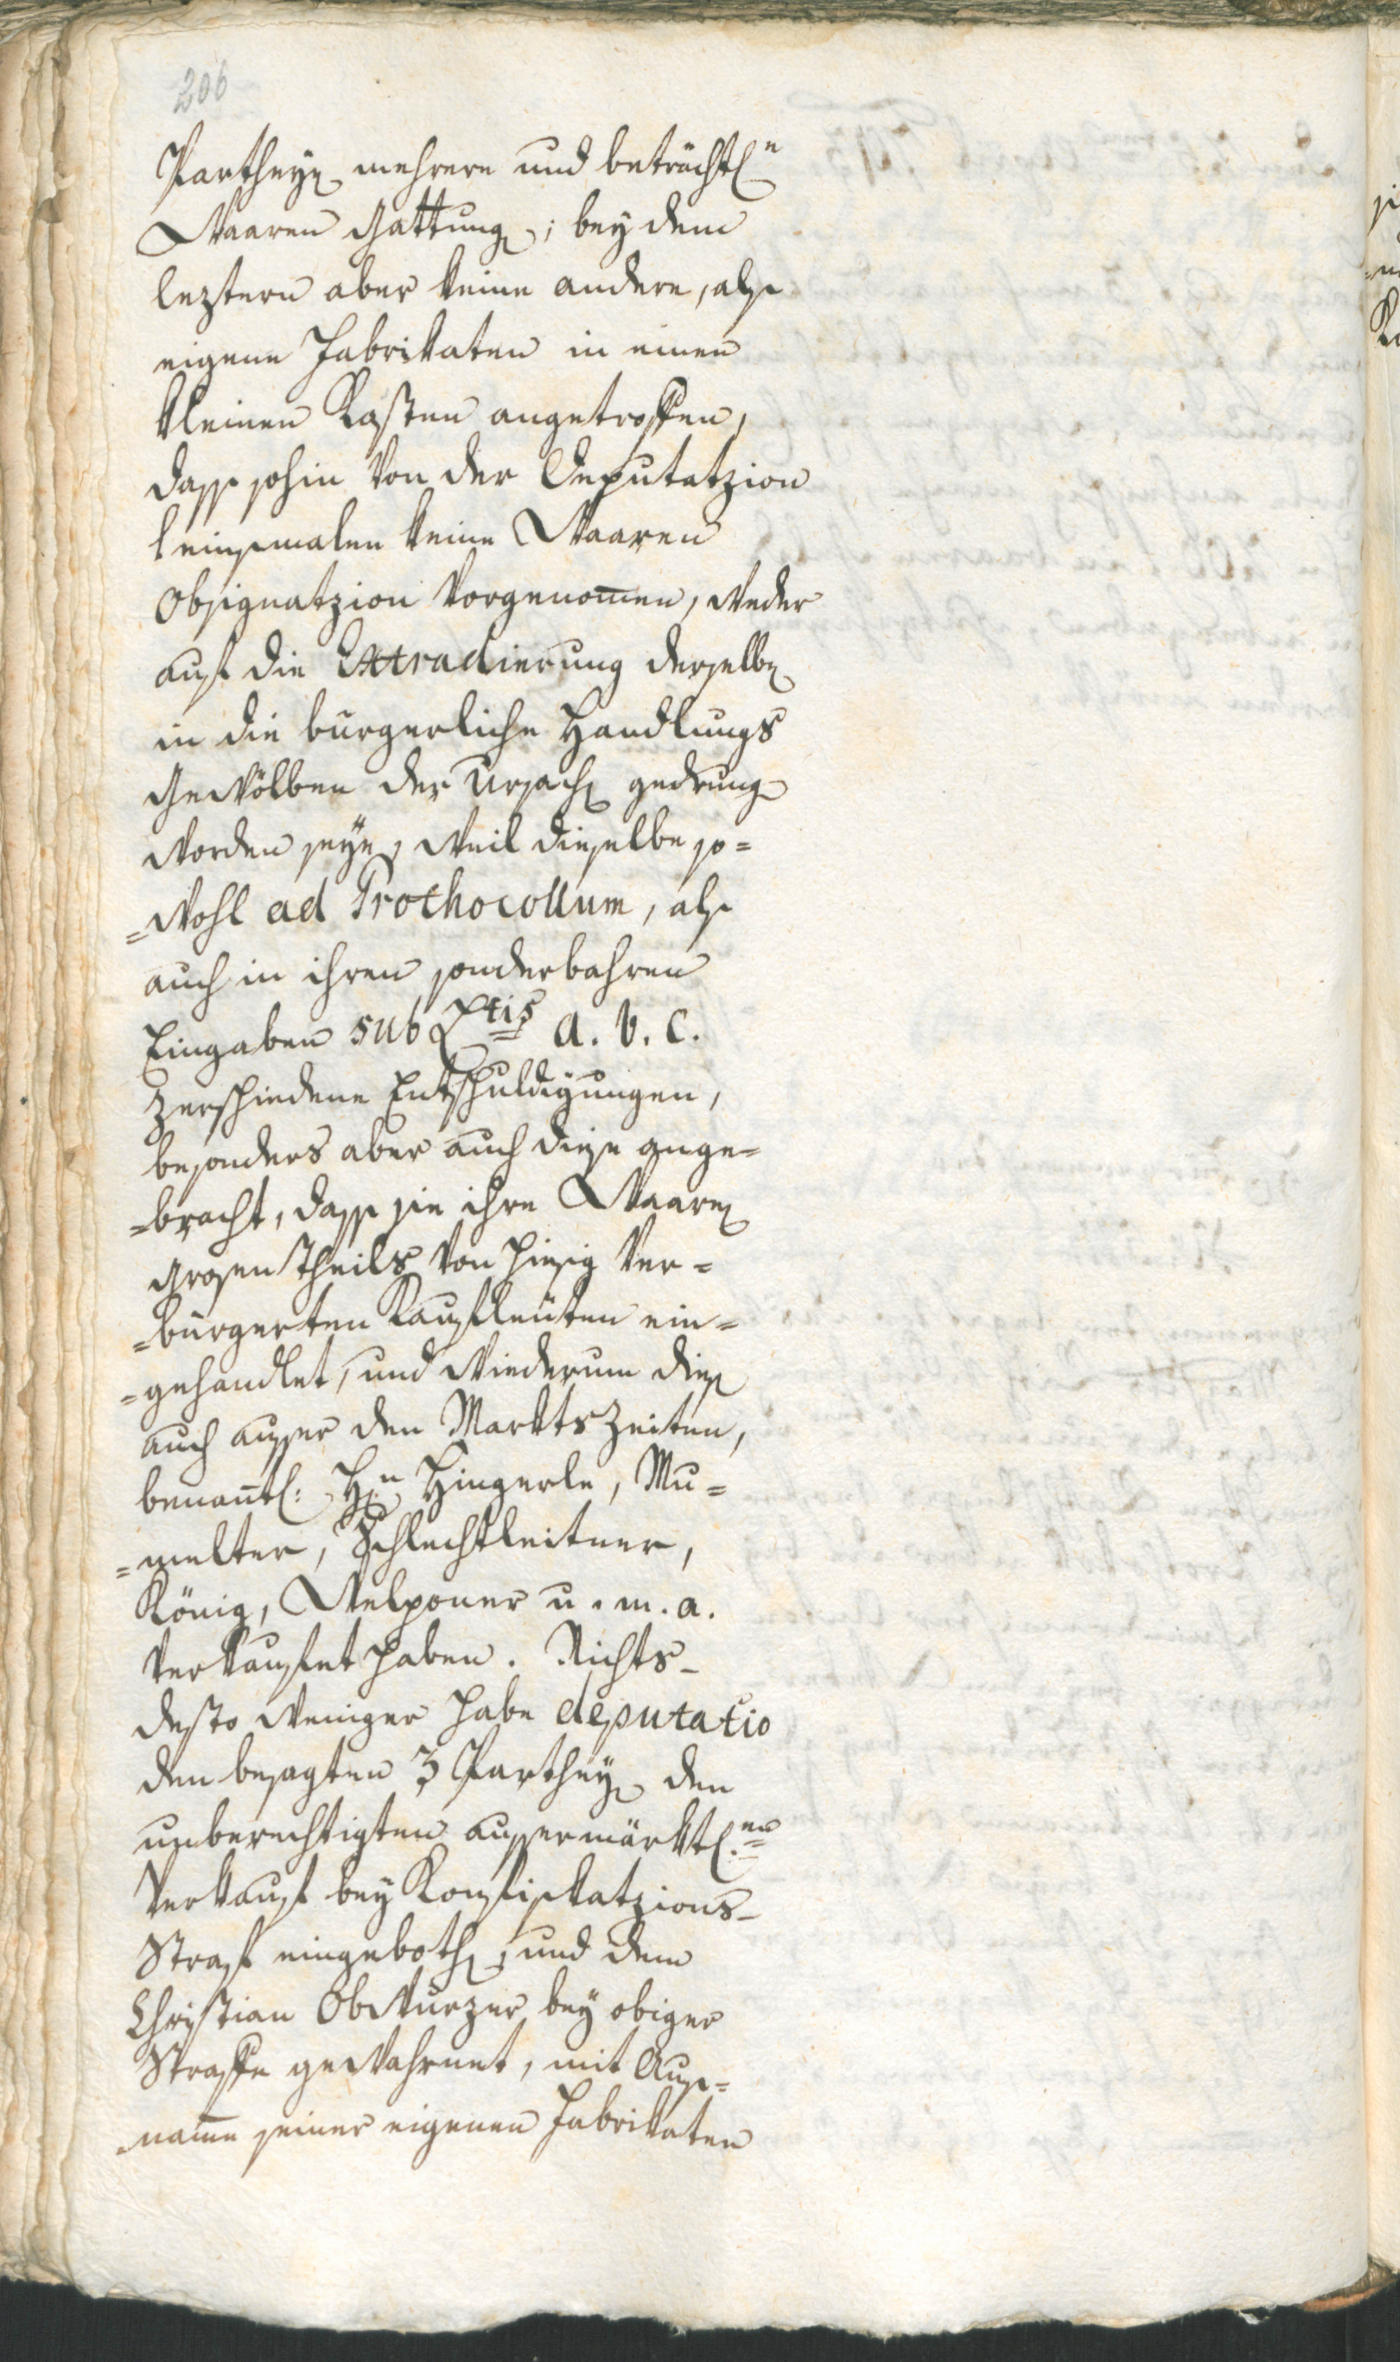 206
Partheyen mehrere und beträchtln
Waaren Gattung; bey dem
leztern aber keine andere, alß
eigene Fabrikaten in einen
kleinen Kasten angetroffen,
daß sohin von der Deputatzion
keine Waaren
Obsignatzion vorgenom̄en, weder
auf die Extradierung derselben
in die burgerliche Handlungs
Gewölben der Ursachen gedrungen
worden seye, weil dieselbe so=
=wohl ad Prothocollum, alß
auch in ihren sonderbahren
Eingaben sub Ltis a. b. c.
zerschiedene Entschuldigungen,
besonders aber auch diese ange=
=bracht, daß sie ihre Waaren
grosen Theils von hiesig ver=
=burgerten Kaufleuten ein=
=gehandlet, und wiederum diesen
auch ausser den Markts Zeiten,
benañtl: Hn Hingerle, Mu=
=melter, Schlechtleitner,
König, Welponer u. m. a.
verkaufet haben. Nichts-
desto weniger habe deputatio
den besagten 3 Partheyen den
unberechtigten aussermärktl.en
Verkauf bey Konfiskatzions-
Straf eingebothen, und dem
Christian Obwurzer bey obiger
Straffe gewahrnet, mit Auß=
=nam̄e seiner eigenen Fabrikaten